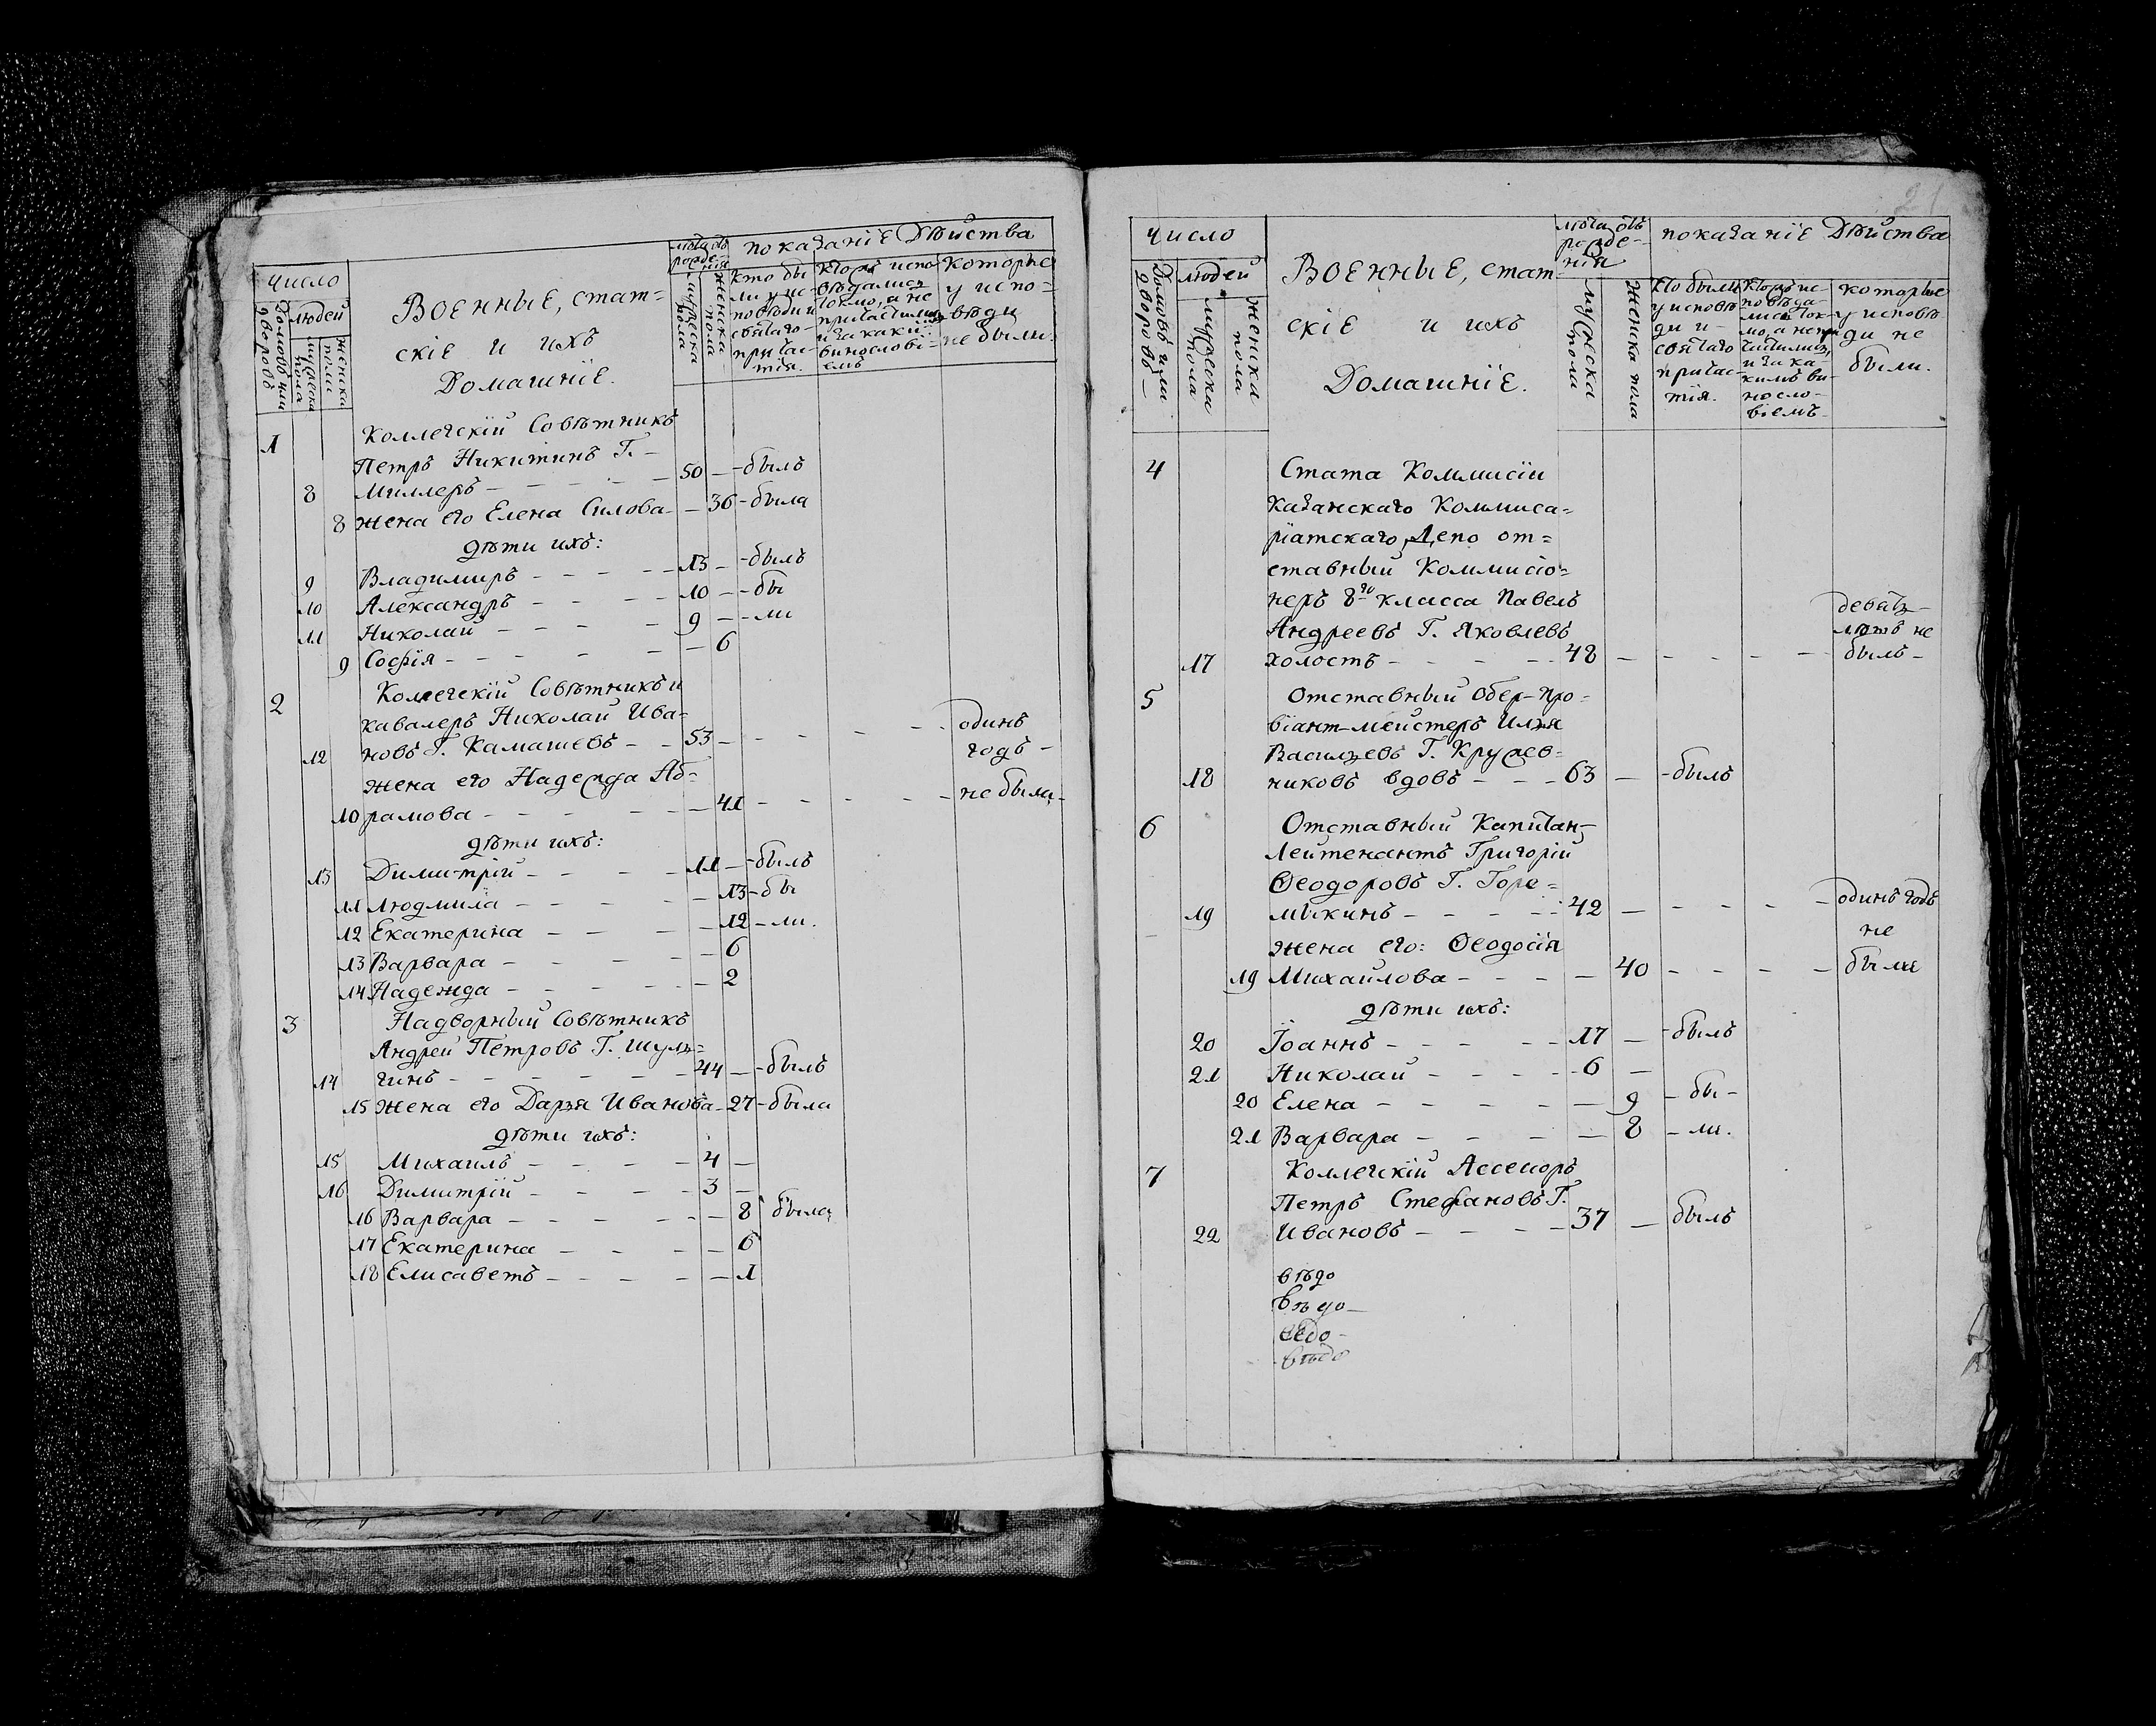 число
Домовъ или дворовъ
людей
мужеска пола
женска пола
Военные, стат=
скіе и ихъ
Домашніе.
лѣта отъ рожде-нія
мужеска пола
женска пола
показаніе Дѣйства
кто бы-
ли у ис-
повѣди и
святаго
причас-
тія.
кторые испо-
вѣдались
токмо, а не
причастились
и за какимъ
винослові-
емъ
которые
у испо=
вѣди
не были.
1 Коллегскій Совѣтникъ
Петръ Никитинъ Г. –
8 Миллеръ – – – – – 50 – – былъ
8 жена его Елена Силова – – 36 – была
дѣти ихъ:
9 Владимиръ – – – – 13 – – былъ
10 Александръ – – – – 10 – – бы
11 Николай – – – – 9 – – ли
9 Софія – – – – – 6
2 Коллегскій Совѣтникъ и
кавалеръ Николай Ива=
12 новъ Г. Камашевъ – – 53 – – – – – одинъ
годъ –
жена его Надежда Аб=
10 рамова – – – – – 41 – – – – – не были
дѣти ихъ:
13 Димитрій – – – – 11 – – былъ
11 Людмила – – – – – 13 – бы
12 Екатерина – – – – 12 – ли.
13 Варвара – – – – 6
14 Надежда – – – – – 2
3 Надворный Совѣтникъ
Андрей Петровъ Г. Шуль=
14 гинъ – – – – – – 44 – – былъ
15 жена его Дарья Иванова – 27 – была
дѣти ихъ:
15 Михаилъ – – – – 4 –
16 Димитрій – – – – 3 –
16 Варвара – – – – – – 8 была
17 Екатерина – – – – 6
18 Елисаветъ – – – – – 1
число
Домовъ или дворовъ –
людей
мужеска пола
женска пола
Военные, стат=
скіе и ихъ
Домашніе.
лѣта отъ
рожде-
нія
мужеска пола
женска пола
показаніе Дѣйства
кто были
у исповѣ
ди и –
святаго
причас-
тія.
кторые ис-
повѣда-
лись ток-
мо, а непри
частились,
и за ка
кимъ ви-
носло-
віемъ
которые
у исповѣ
ди не
были.
4 Стата Коммисіи
Казанскаго Коммиса=
ріатскаго Депо от=
ставный Коммисіо=
неръ 8го класса Павелъ
Андреевъ Г. Яковлевъ
девять –
лѣтъ не
17 холостъ – – – – – 48 – – – – – былъ –
5 Отставный Обер-Про=
віант-мейстеръ Илья
Васильевъ Г. Кружев=
18 никовъ вдовъ – – – 63 – – былъ
6 Отставный Капитан-
Лейтенантъ Григорій
Ѳеодоровъ Г. Горе=
19 мыкинъ – – – – – 42 – – – – – одинъ годъ
не
жена его: Ѳеодосія
19 Михайлова – – – – 40 – – – – были
дѣти ихъ:
20 Іоаннъ – – – – – 17 – – былъ
21 Николай – – – – – 6 –
20 Елена – – – – – 9 – бы –
21 Варвара – – – – 8 – ли.
7 Коллегскій Ассесоръ
Петръ Стефановъ Г.
22 Ивановъ – – – – 37 – былъ
вѣдо
вѣдо –
вѣдо